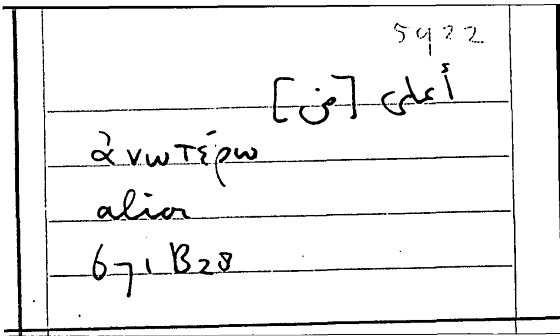 5922
أعلى [من]
ἀνωτέρω
alior
671 B28